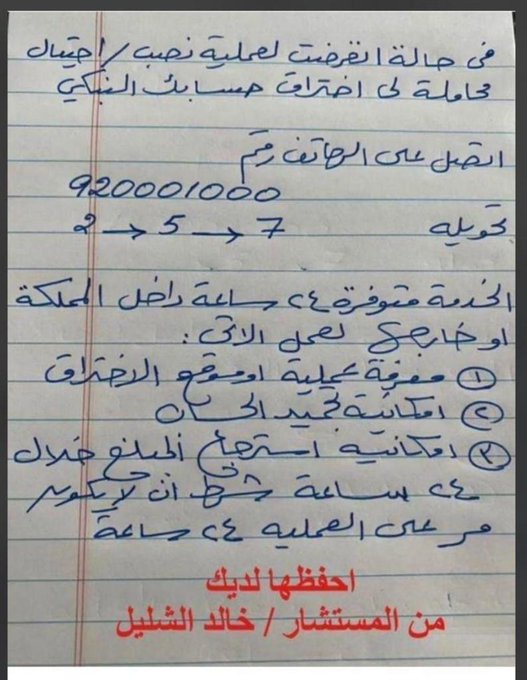 في حالة التعرضت لعملية نصب / احتيال
محاولة لى اختراق حسابك البنكي
اتصل على الهاتف رقم
920001000
تحويله 2 → 5 → 7
الخدمة متوفرة ٢٤ ساعة داخل المملكة
او خارجها لعمل الاتى :
① معرفة عملية او موقع الاختراق
② امكانية تجميد الحساب
③ امكانيه استرجاع المبلغ خلال
٢٤ ساعة شرط ان لا يكون
مر على العمليه ٢٤ ساعة
احفظها لديك
من المستشار / خالد الشليل